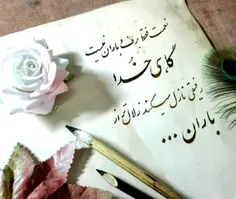 نعمت فقط برف و باران نیست
گاهی خدا
رفیقی نازل میکند زلال تر از
باران ...